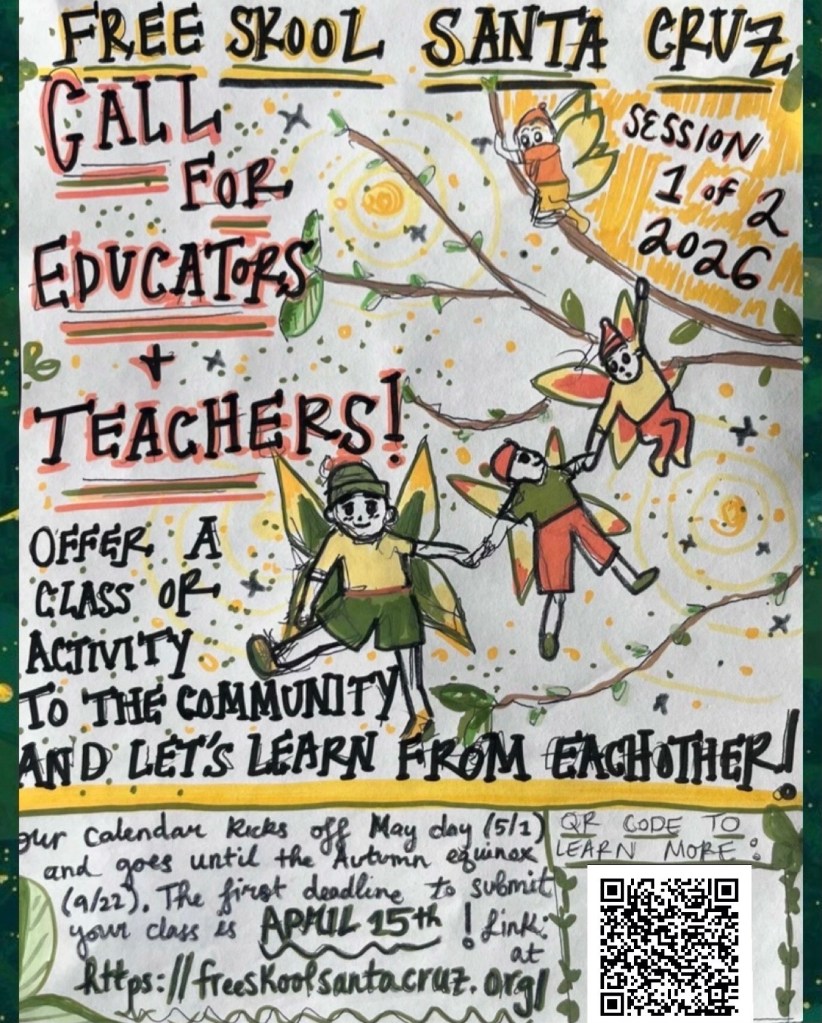 FREE SKOOL SANTA CRUZ
CALL
FOR
EDUCATORS
+
TEACHERS!
SESSION
1 of 2
2026
OFFER A
CLASS OR
ACTIVITY
TO THE COMMUNITY
AND LET'S LEARN FROM EACHOTHER!
our calendar kicks off May day (5/1)
and goes until the Autumn equinox
(9/22). The first deadline to submit
your class is APRIL 15th! Link:
at
https://freeskoolsantacruz.org/
QR CODE TO
LEARN MORE: